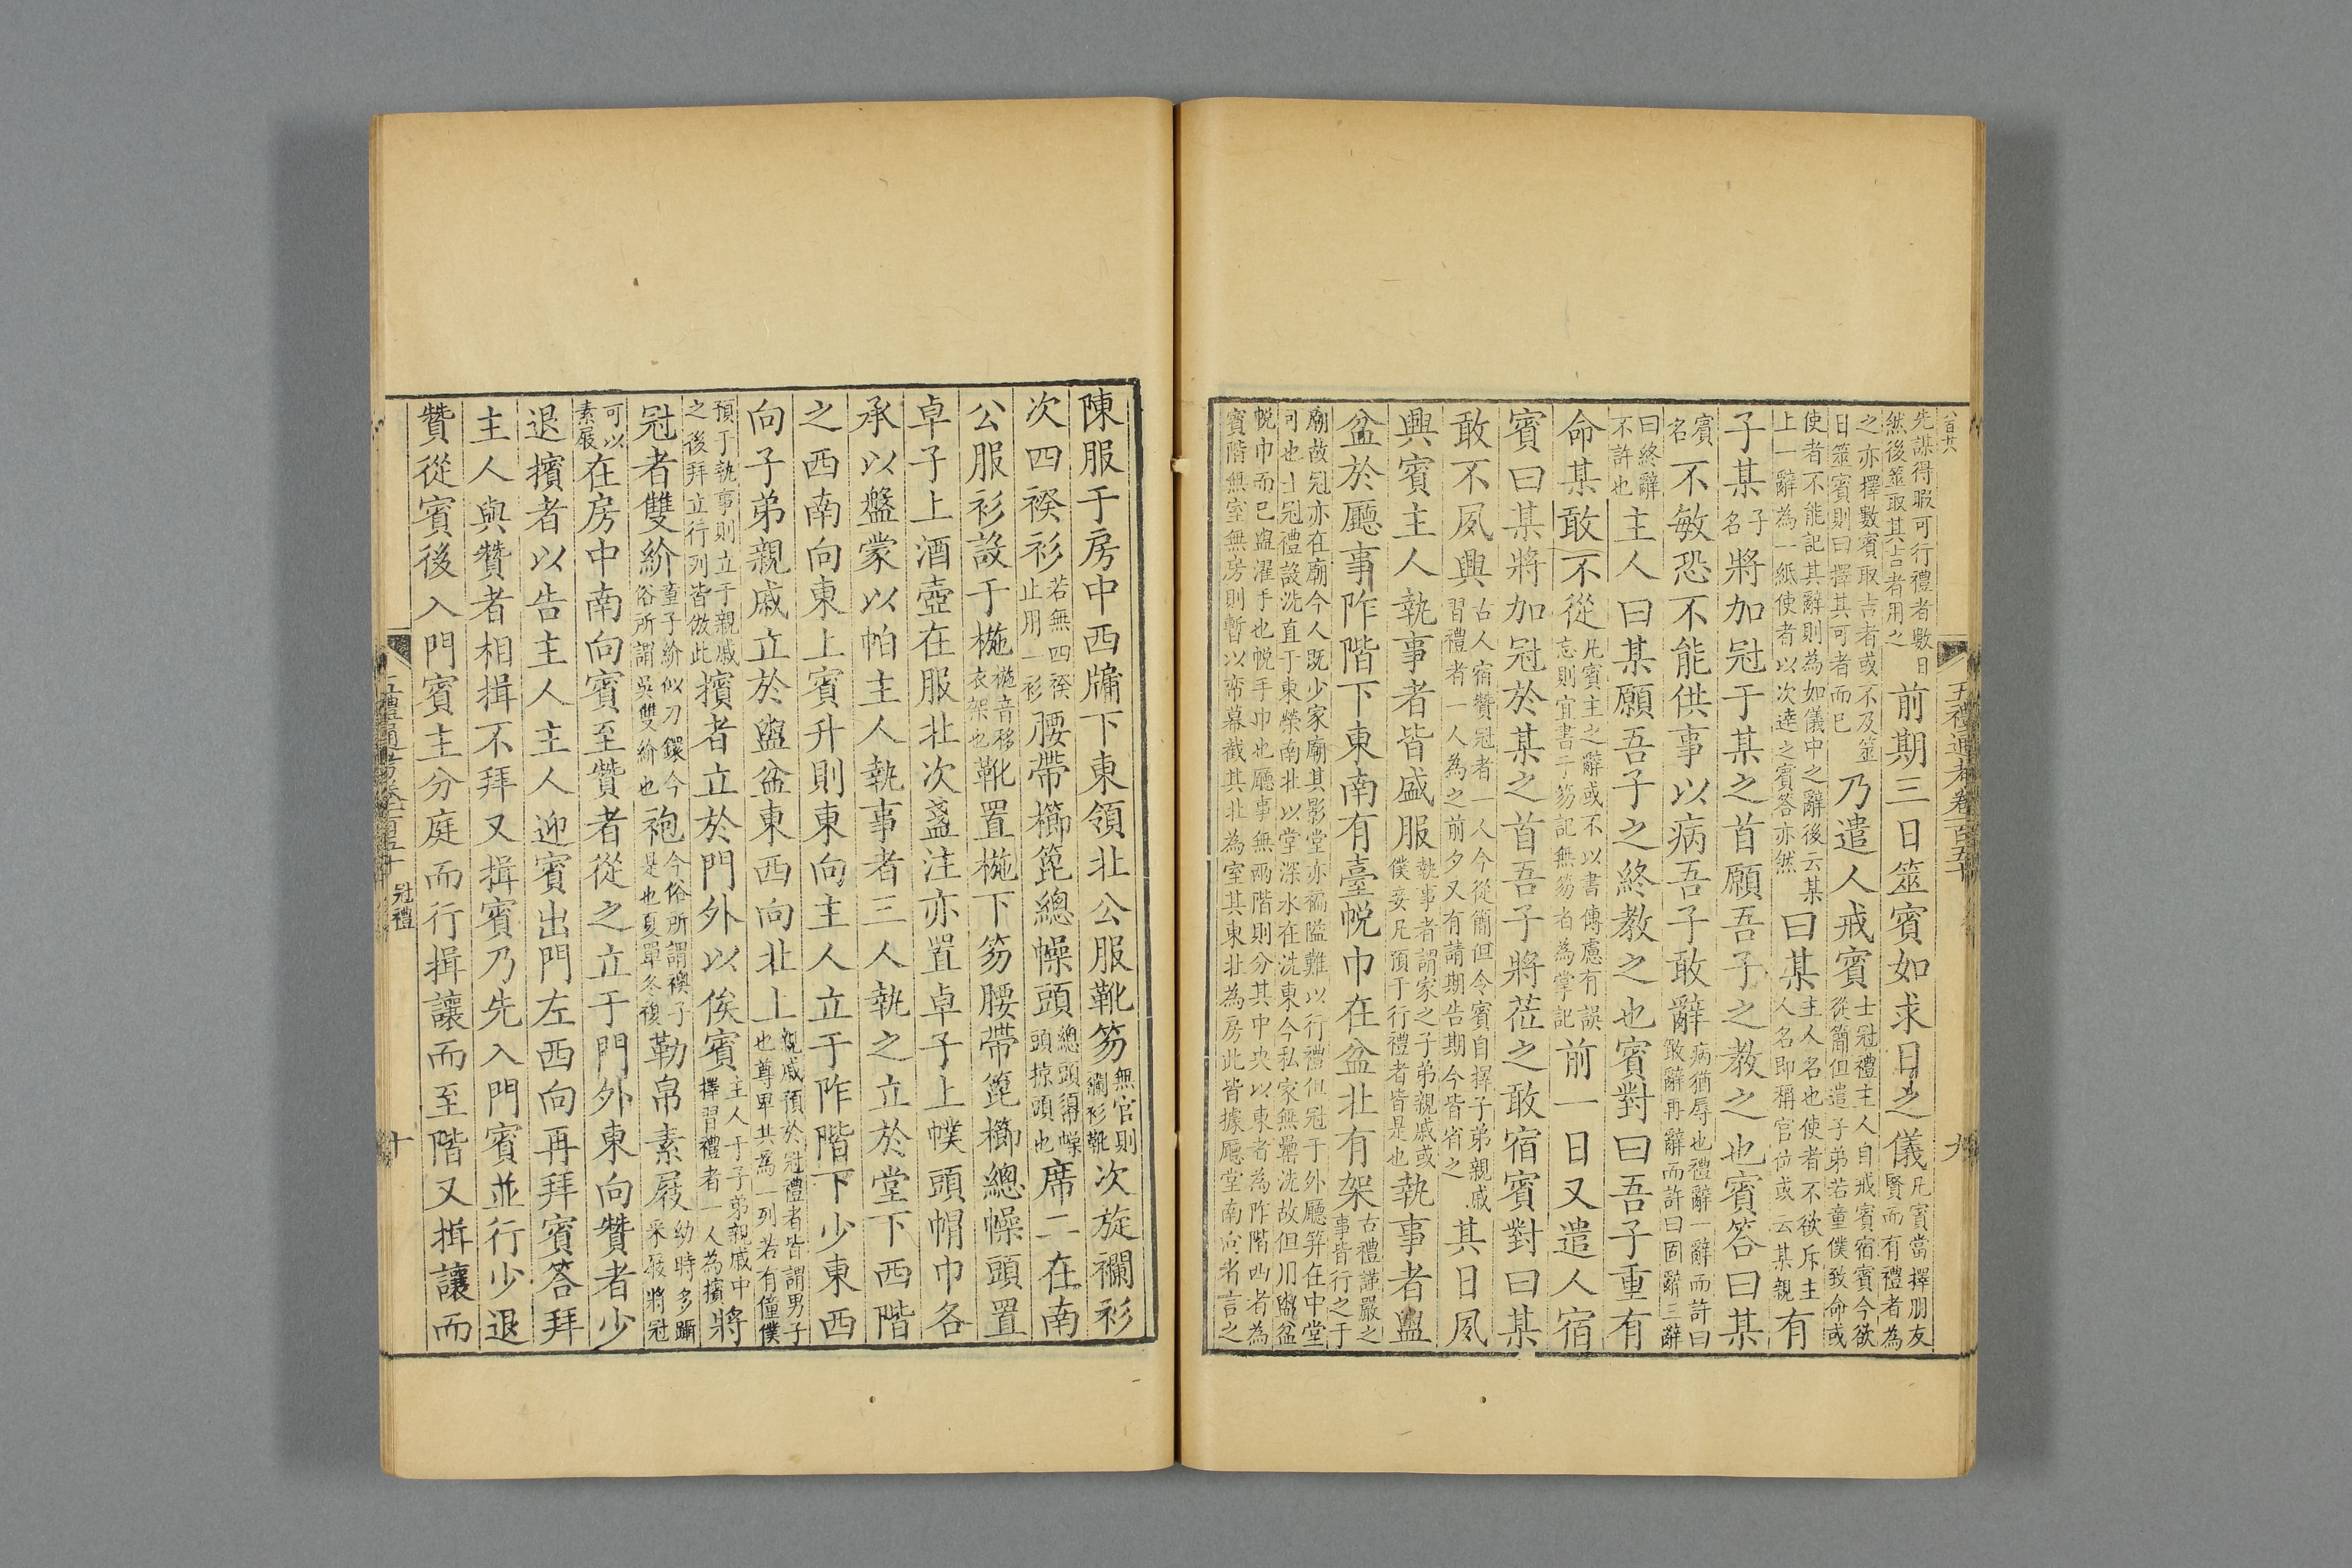 八百廿六
五禮通考卷一百五十
九
先謀得暇可行禮者數日然後筮取其吉者用之前期三日筮賓如求日之儀凡賓當擇朋友賢而有禮者為
之亦擇數賓取吉者或不及筮日筮賓則曰擇其可者而已乃遣人戒賓士冠禮主人自戒賓宿賓今欲從簡但遣子弟若童僕致命或
使者不能記其辭則為如儀中之辭後云某上一辭為一紙使者以次達之賓答亦然曰某主人名也使者不欲斥主人名即稱官位或云某親有
子某子名將加冠于某之首願吾子之教之也賓答曰某
賓名不敏恐不能供事以病吾子敢辭病猶辱也禮辭一辭而許曰敢辭再辭而許曰固辭三辭
曰終辭不許也主人曰某願吾子之終教之也賓對曰吾子重有
命某敢不從凡賓主之辭或不以書傳慮有誤忘則宜書于笏記無笏者為掌記前一日又遣人宿
賓曰某將加冠於某之首吾子將莅之敢宿賓對曰某
敢不夙興古人宿贊冠者一人今從簡但令賓自擇子弟親戚習禮者一人為之前夕又有請期告期今皆省之其日夙
興賓主人執事者皆盛服執事者謂家之子弟親戚或僕妾凡預于行禮者皆是也執事者盥
盆於廳事阼階下東南有臺帨巾在盆北有架古禮謹嚴之事皆行之于
廟故冠亦在廟今人既少家廟其影堂亦褊隘難以行禮但冠于外廳笄在中堂可也士冠禮設洗直于東榮南北以堂深水在洗東今私家無罍洗故但用盥盆
帨巾而已盥濯手也帨手巾也廳事無兩階則分其中央以東者為阼階西者為賓階無室無房則暫以帟幕截其北為室其東北為房此皆據廳堂南向者言之
陳服于房中西牖下東領北公服靴笏無官則襴衫靴次旋襴衫
次四䙆衫若無四䙆止用一衫腰帶櫛篦總幧頭總頭𢄼幧頭掠頭也席二在南
公服衫設于椸椸音移衣架也靴置椸下笏腰帶篦櫛總幧頭置
卓子上酒壺在服北次盞注亦置卓子上幞頭帽巾各
承以盤蒙以帕主人執事者三人執之立於堂下西階
之西南向東上賓升則東向主人立于阼階下少東西
向子弟親戚立於盥盆東西向北上親戚預於冠禮者皆謂男子也尊卑共為一列若有僮僕
預于執事則立于親戚之後拜立行列皆倣此擯者立於門外以俟賓主人于子弟親戚中擇習禮者一人為擯將
冠者雙紒童子紒似刀鐶今俗所謂吳雙紒也袍今俗所謂襖子是也夏單冬複勒帛素屐幼時多躧采屐將冠
可以素屐在房中南向賓至贊者從之立于門外東向贊者少
退擯者以告主人主人迎賓出門左西向再拜賓答拜
主人與贊者相揖不拜又揖賓乃先入門賓並行少退
贊從賓後入門賓主分庭而行揖讓而至階又揖讓而
五禮通考卷一百五十 冠禮
十